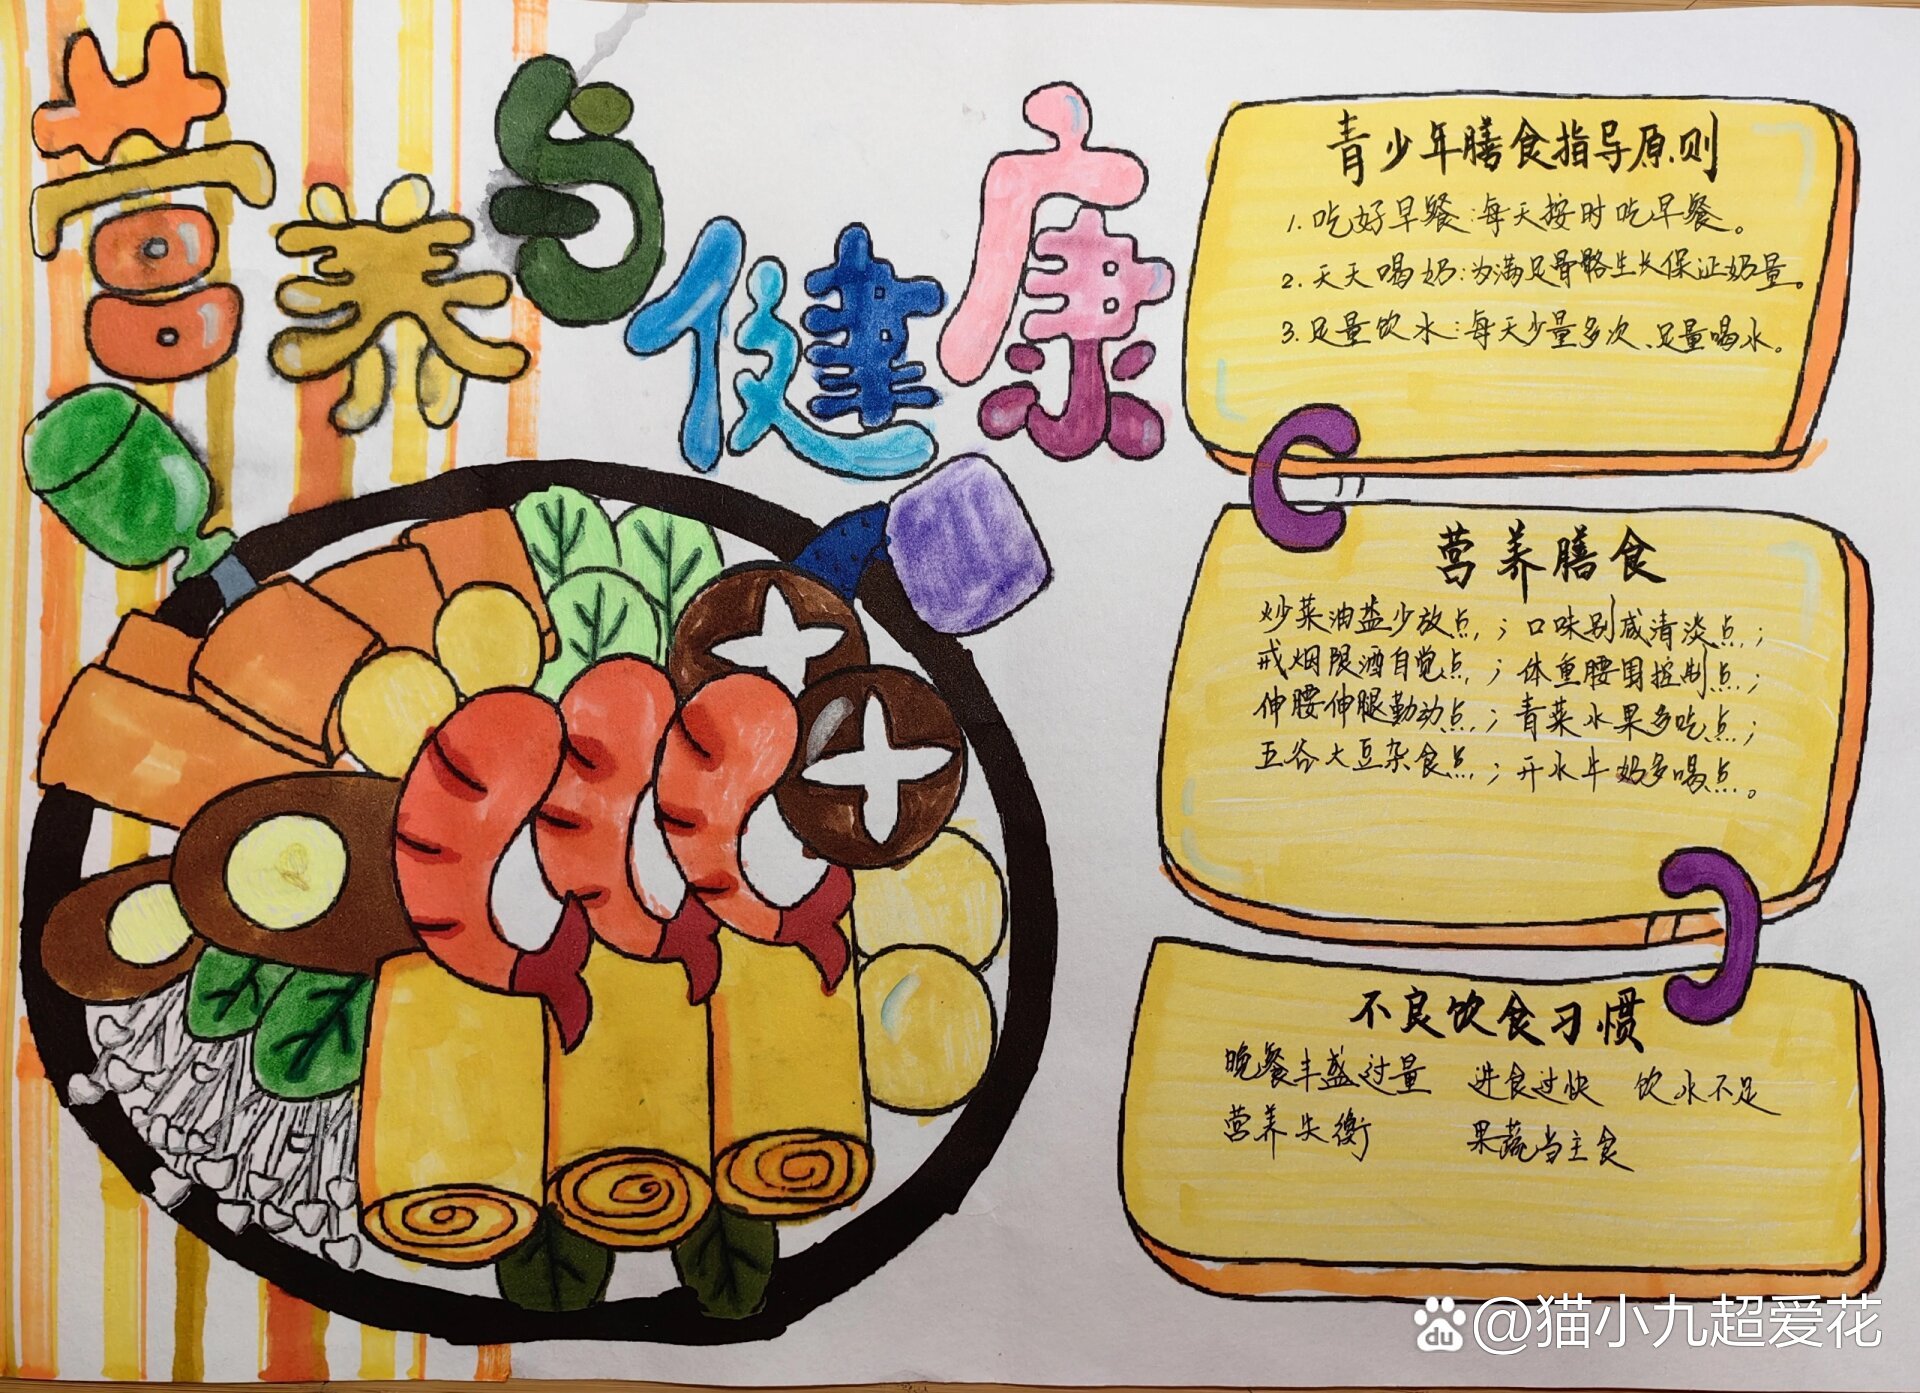 营养与健康
青少年膳食指导原则
1. 吃好早餐:每天按时吃早餐。
2. 天天喝奶:为满足骨骼生长保证奶量。
3. 足量饮水:每天少量多次、足量喝水。
营养膳食
炒菜油盐少放点；口味别咸清淡点；
戒烟限酒自觉点；体重腰围控制点；
伸腰伸腿勤动点；青菜水果多吃点；
五谷大豆杂食点；开水牛奶多喝点。
不良饮食习惯
晚餐丰盛过量 进食过快 饮水不足
营养失衡 果蔬当主食
Bai du @猫小九超爱花